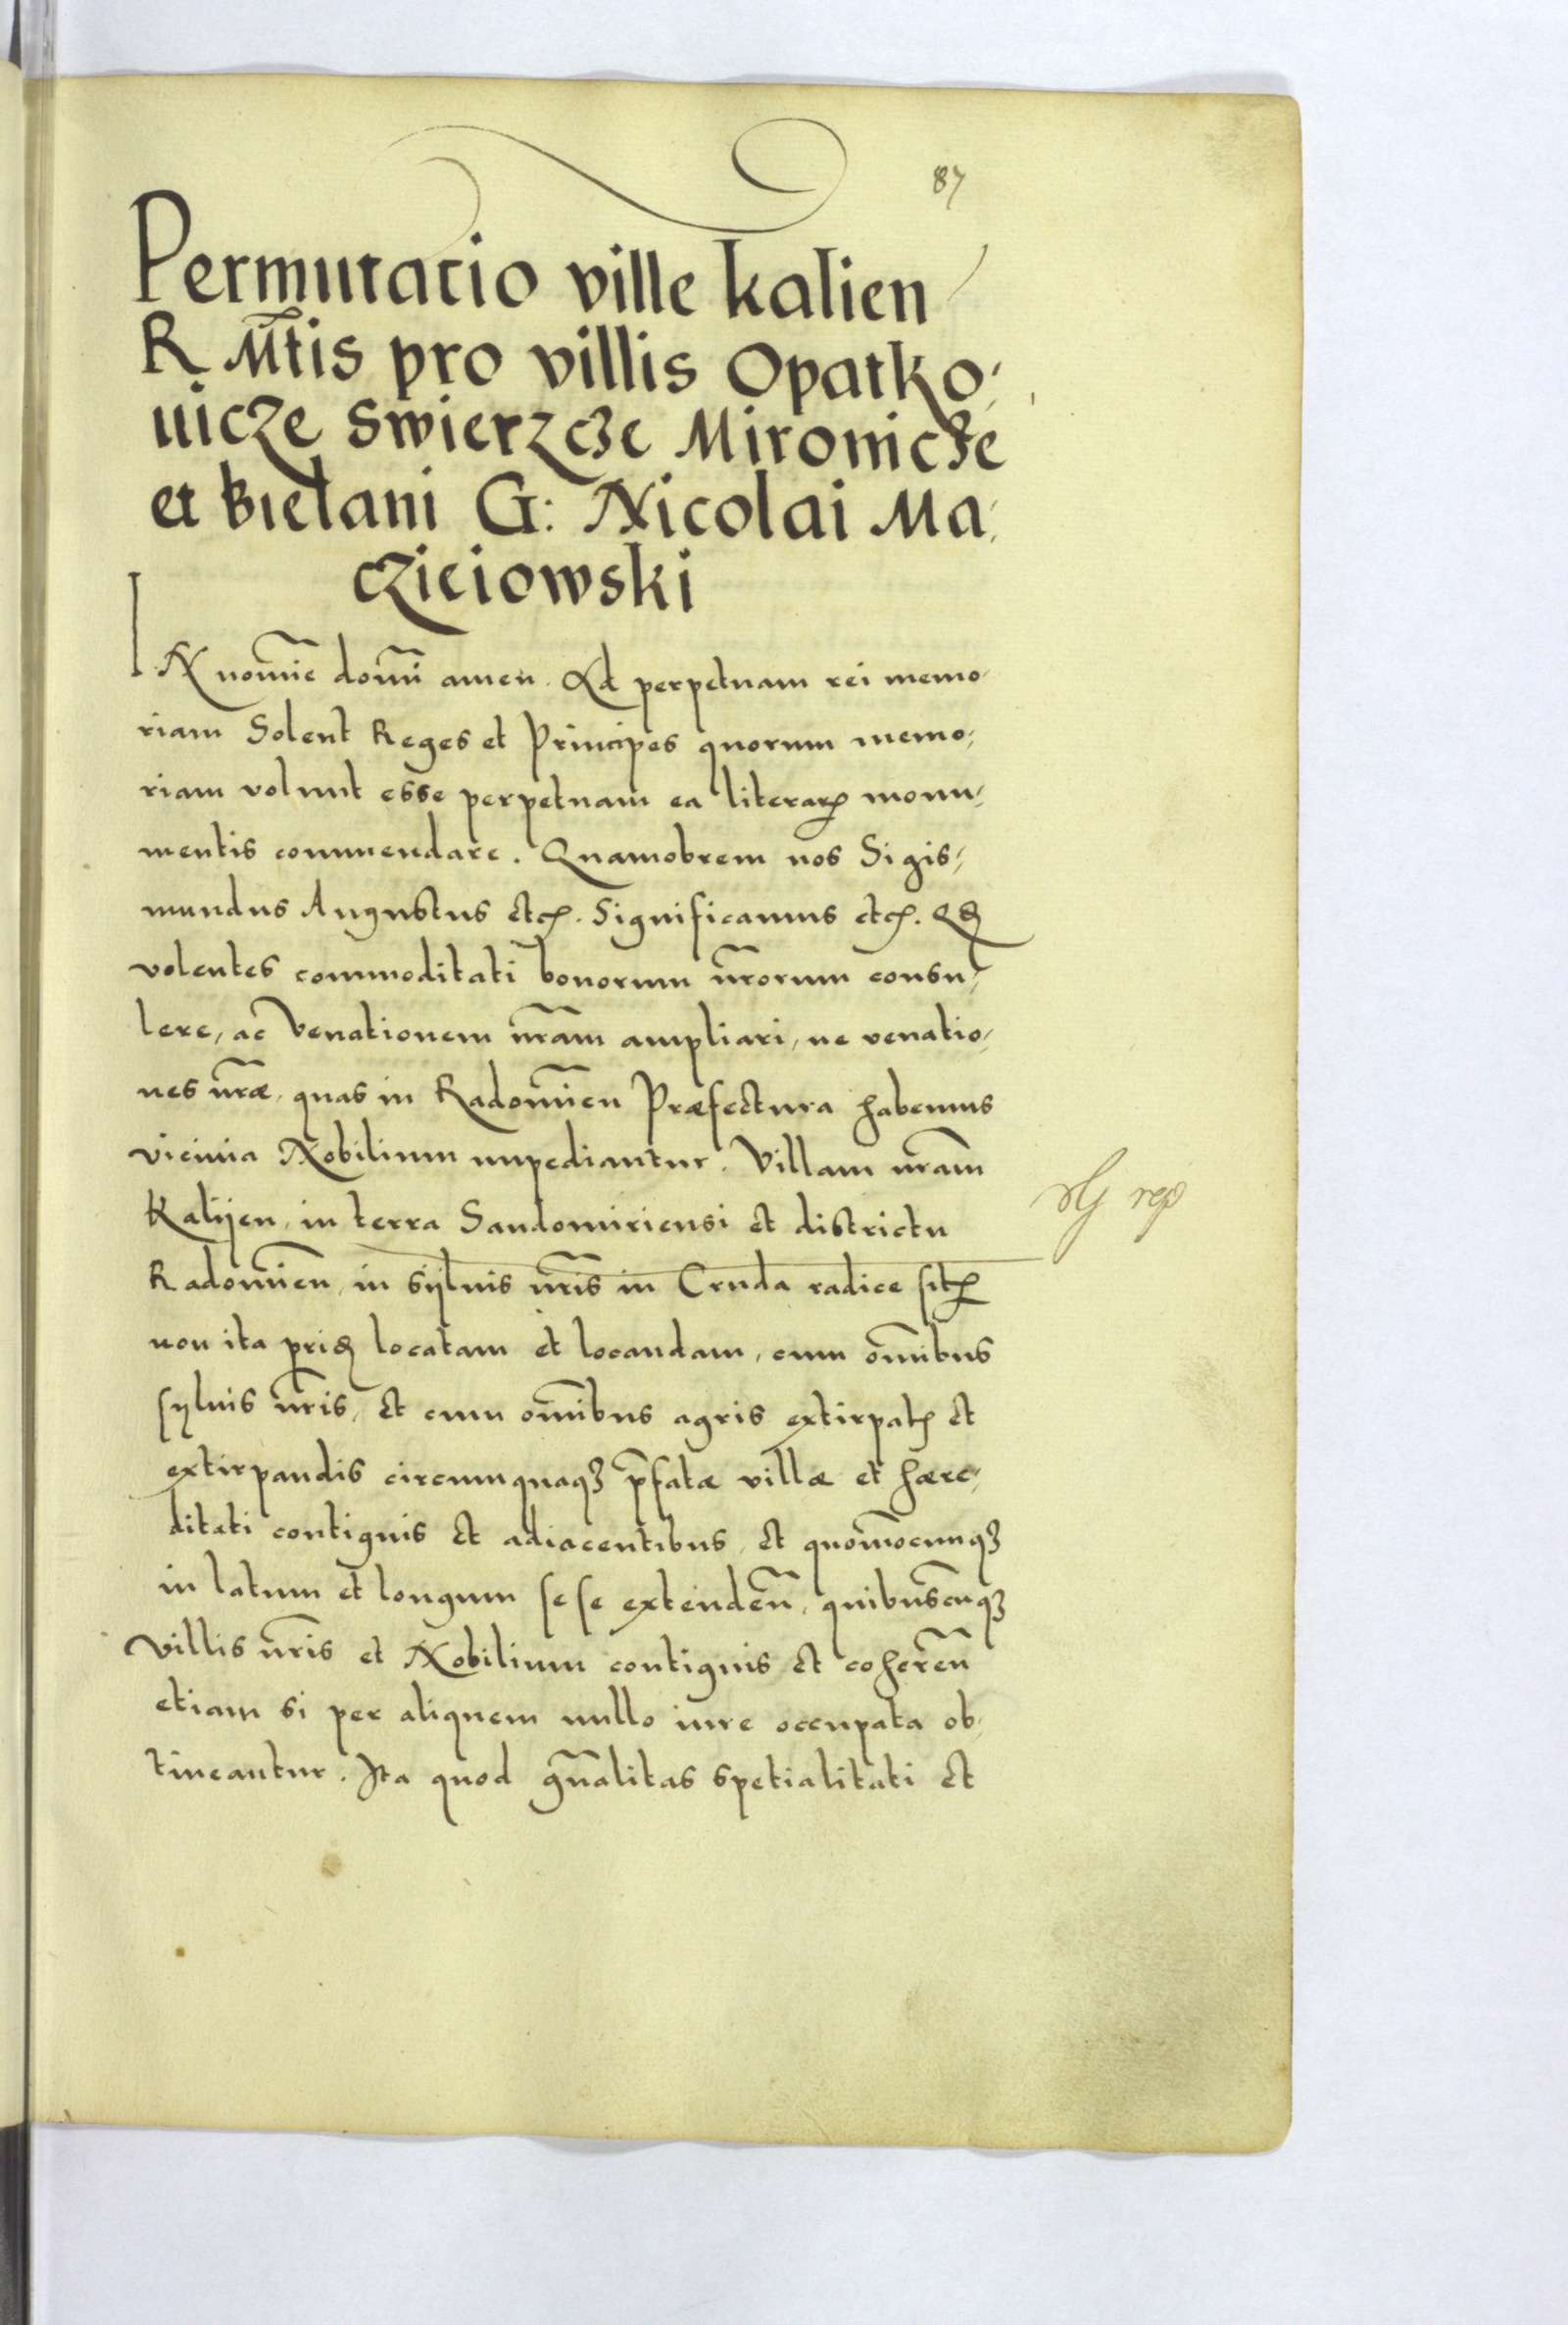 87
Permutatio ville kalien
R Mt̃is pro villis Opatko,
uicze Swierzcze Mironicze
et Bielani G: Nicolai Ma,
cziciowski
IN nomi̅e domi̅ amen. Ad perpetuam rei memo,
riam Solent Reges et Principes quorum memo,
riam volunt esse perpetuam ea literarꝝ monu,
mentis commendare. Quamobrem nos Sigis,
mundus Augustus etc. Significamus etc. Qꝫ
volentes commoditati bonorum nr̅orum consu,
lere, ac Venationem nr̅am ampliari, ne venatio,
nes nr̅æ, quas in Radomi̅en Præfectura habemus
vicinia Nobilium impediantur. Villam nr̅am
Kalijen, in terra Sandomiriensi et districtu
Radomi̅en, in sijluis nr̅is in Cruda radice sitꝫ
non ita priꝫ locatam et locandam, cum om̅ibus
syluis nr̅is, et cum om̅ibus agris extirpatꝫ et
extirpandis circumquaqꝫ p̅fatæ villæ et hære,
ditati contiguis et adiacentibus, et quomo̅cunqꝫ
in latum et longum sese extenden̅, quibuscu̅qꝫ
villis nr̅is et Nobilium contiguis et coheren̅
etiam si per aliquem nullo iure occupata ob,
tineantur. Ita quod gn̅alitas spetialitati et